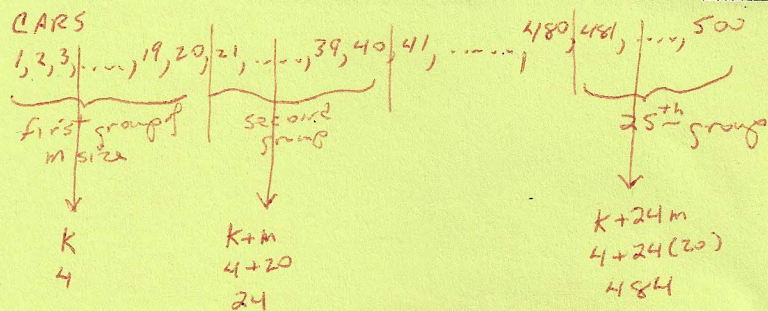 CARS
1, 2, 3, ....., 19, 20, 21, ....., 39, 40, 41, ......., 480, 481, ...., 500
first group of
m size
second
group
25th group
K
4
K+m
4+20
24
K+24m
4+24(20)
484